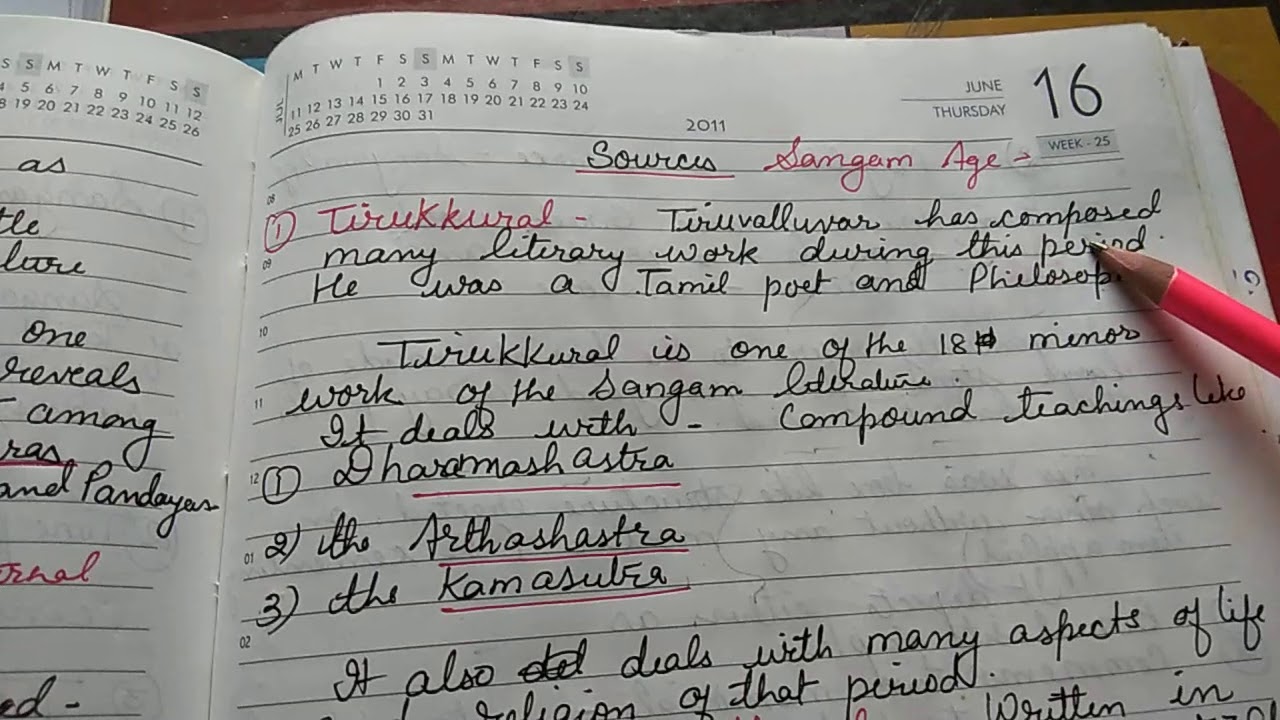 S S M T W T F S S
4 5 6 7 8 9 10 11 12
18 19 20 21 22 23 24 25 26
as
tle
lure
one
reveals
among
ras
and Pandayas
ornal
ed -
M T W T F S S M T W T F S S
1 2 3 4 5 6 7 8 9 10
11 12 13 14 15 16 17 18 19 20 21 22 23 24
25 26 27 28 29 30 31
2011
JUNE
THURSDAY
16
WEEK - 25
Sources Sangam Age →
08
① Tirukkural - Tiruvalluvar has composed
09
many literary work during this period.
He was a Tamil poet and Philosop
10
Tirukkural is one of the 18 minor
11
work of the Sangam literature.
It deals with - Compound teachings like
12
① Dharamashastra
01
2) the Arthashastra
3) the Kamasutra
02
It also deals with many aspects of life
religion of that period. Written in